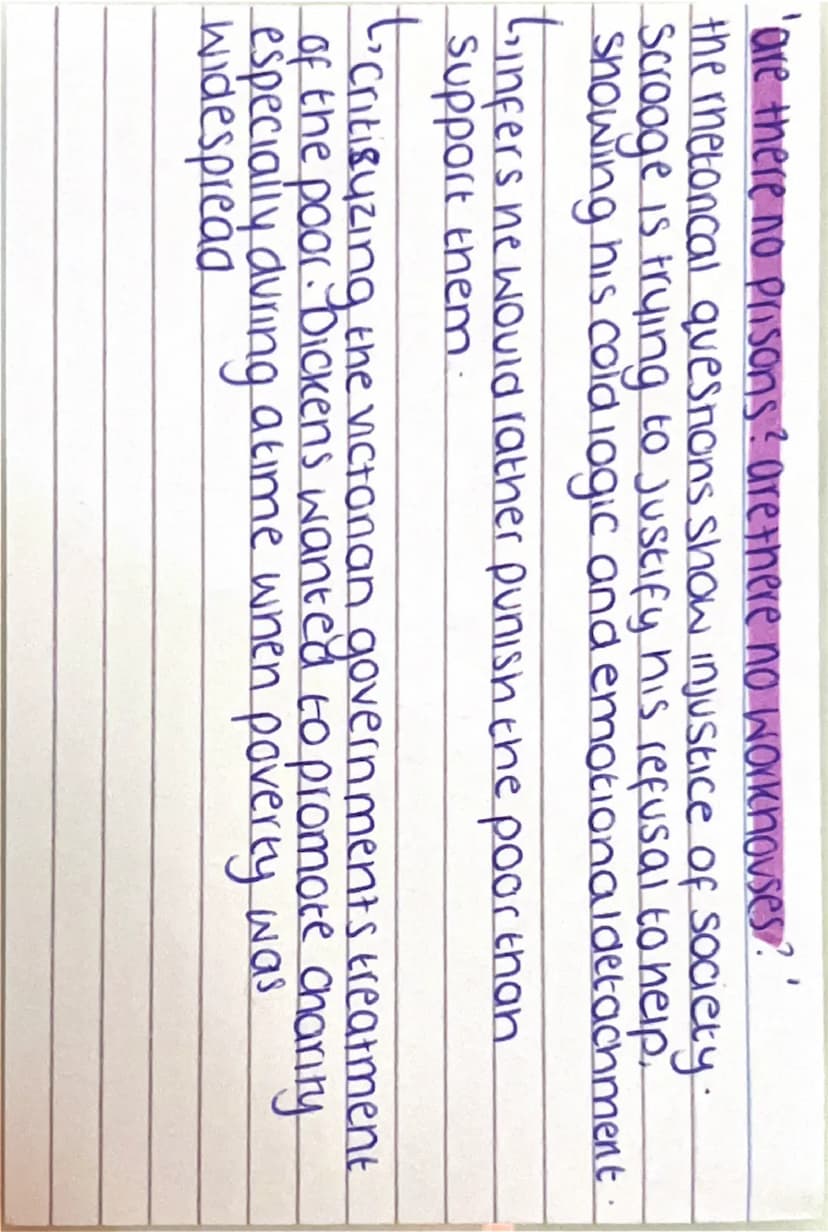 'are there no prisons? are there no workhouses?'
the rhetorical questions show injustice of society.
Scrooge is trying to justify his refusal to help,
showing his cold logic and emotional detachment.
↳ infers he would rather punish the poor than
support them.
↳ critisyzing the victorian governments treatment
of the poor. Dickens wanted to promote charity
especially during a time when poverty was
widespread